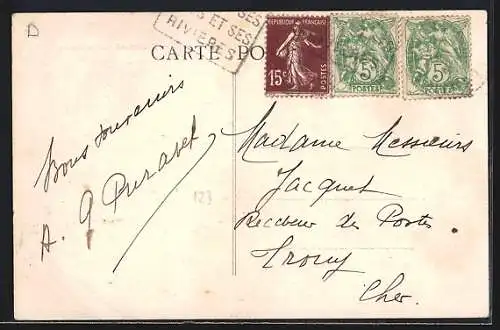 D
SES
S ET SES
RIVIERES
CARTE PO
REPUBLIQUE FRANCAISE
15c
POSTES
5c
POSTES
5c
POSTES
Bons souvenirs
A. G
Madame Messieurs
Jacquet
Receveur des Postes
Cher.
123